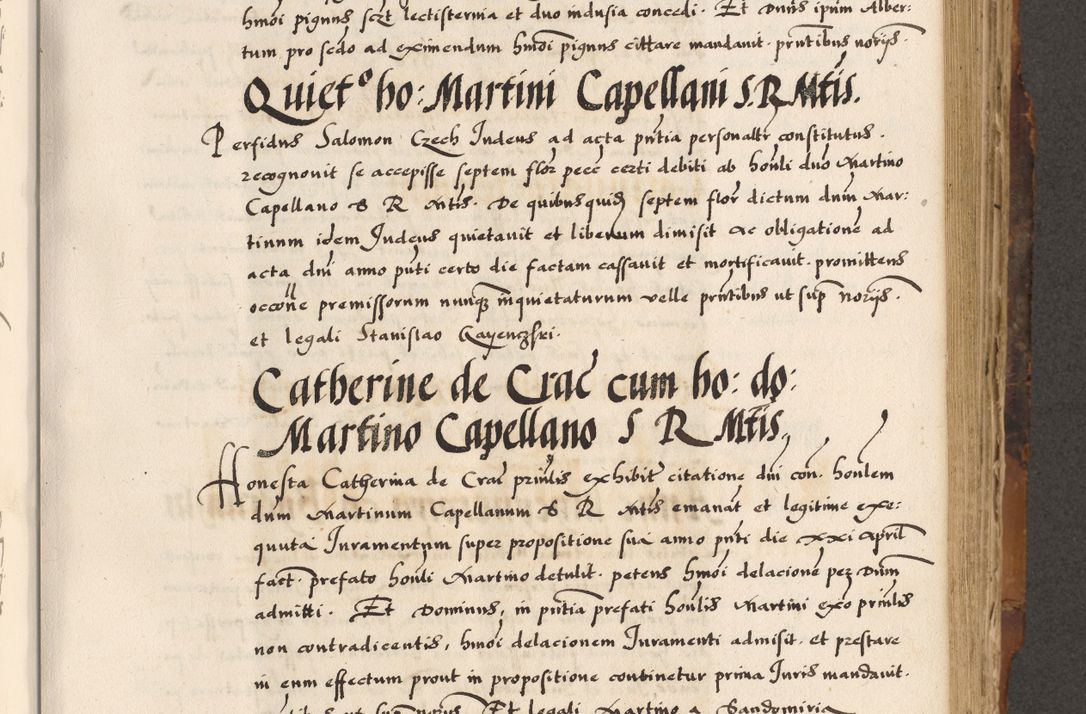 hmoi pignus scźt lectisternia et duo indusia concedi. Et Dnus ipum Alber:
tum pro sedo ad eximendum hmoi pignus cittare mandauit. pntibus norijs.
Quietº ho: Martini Capellani S. R Mtis.
Perfidus Salomon Czech Iudeus ad acta pntia personalr constitutus.
recognouit se accepisse septem flor pecc certi debiti ab honli dno Martino
Capellano S R Mtis. De quibusquid septem flor dictum dnm Mar:
tinum idem Iudeus quietauit et liberum dimisit ac obligatione ad
acta dni anno pnti certo die factam cassauit et mortificauit. promittens
occone premissorum nunq inquietaturum velle pntibus ut sup norijs.
et legali Stanislao Kayenczski.
Catherine de Crac cum ho: do:
Martino Capellano S R Mtis,
Honesta Catherina de Crac prinlis exhibit citatione dni con. honlem
dnm Martinum Capellanum S R Mtis emanat et legitime exe:
quuta Iuramentum super propositione sua anno pnti die xxi April
fact. prefato honli Martino detulit. petens hmoi delacione pez Dnum
admitti. Et Dominus, in pntia prefati honlis Martini exo prinlis
non contradicentis, hmoi delacionem Iuramenti admisit. et prestare
in eum effectum prout in propositione continetur prima Iuris mandauit.
ut sup norijs Et legali Martino a Sandomiria